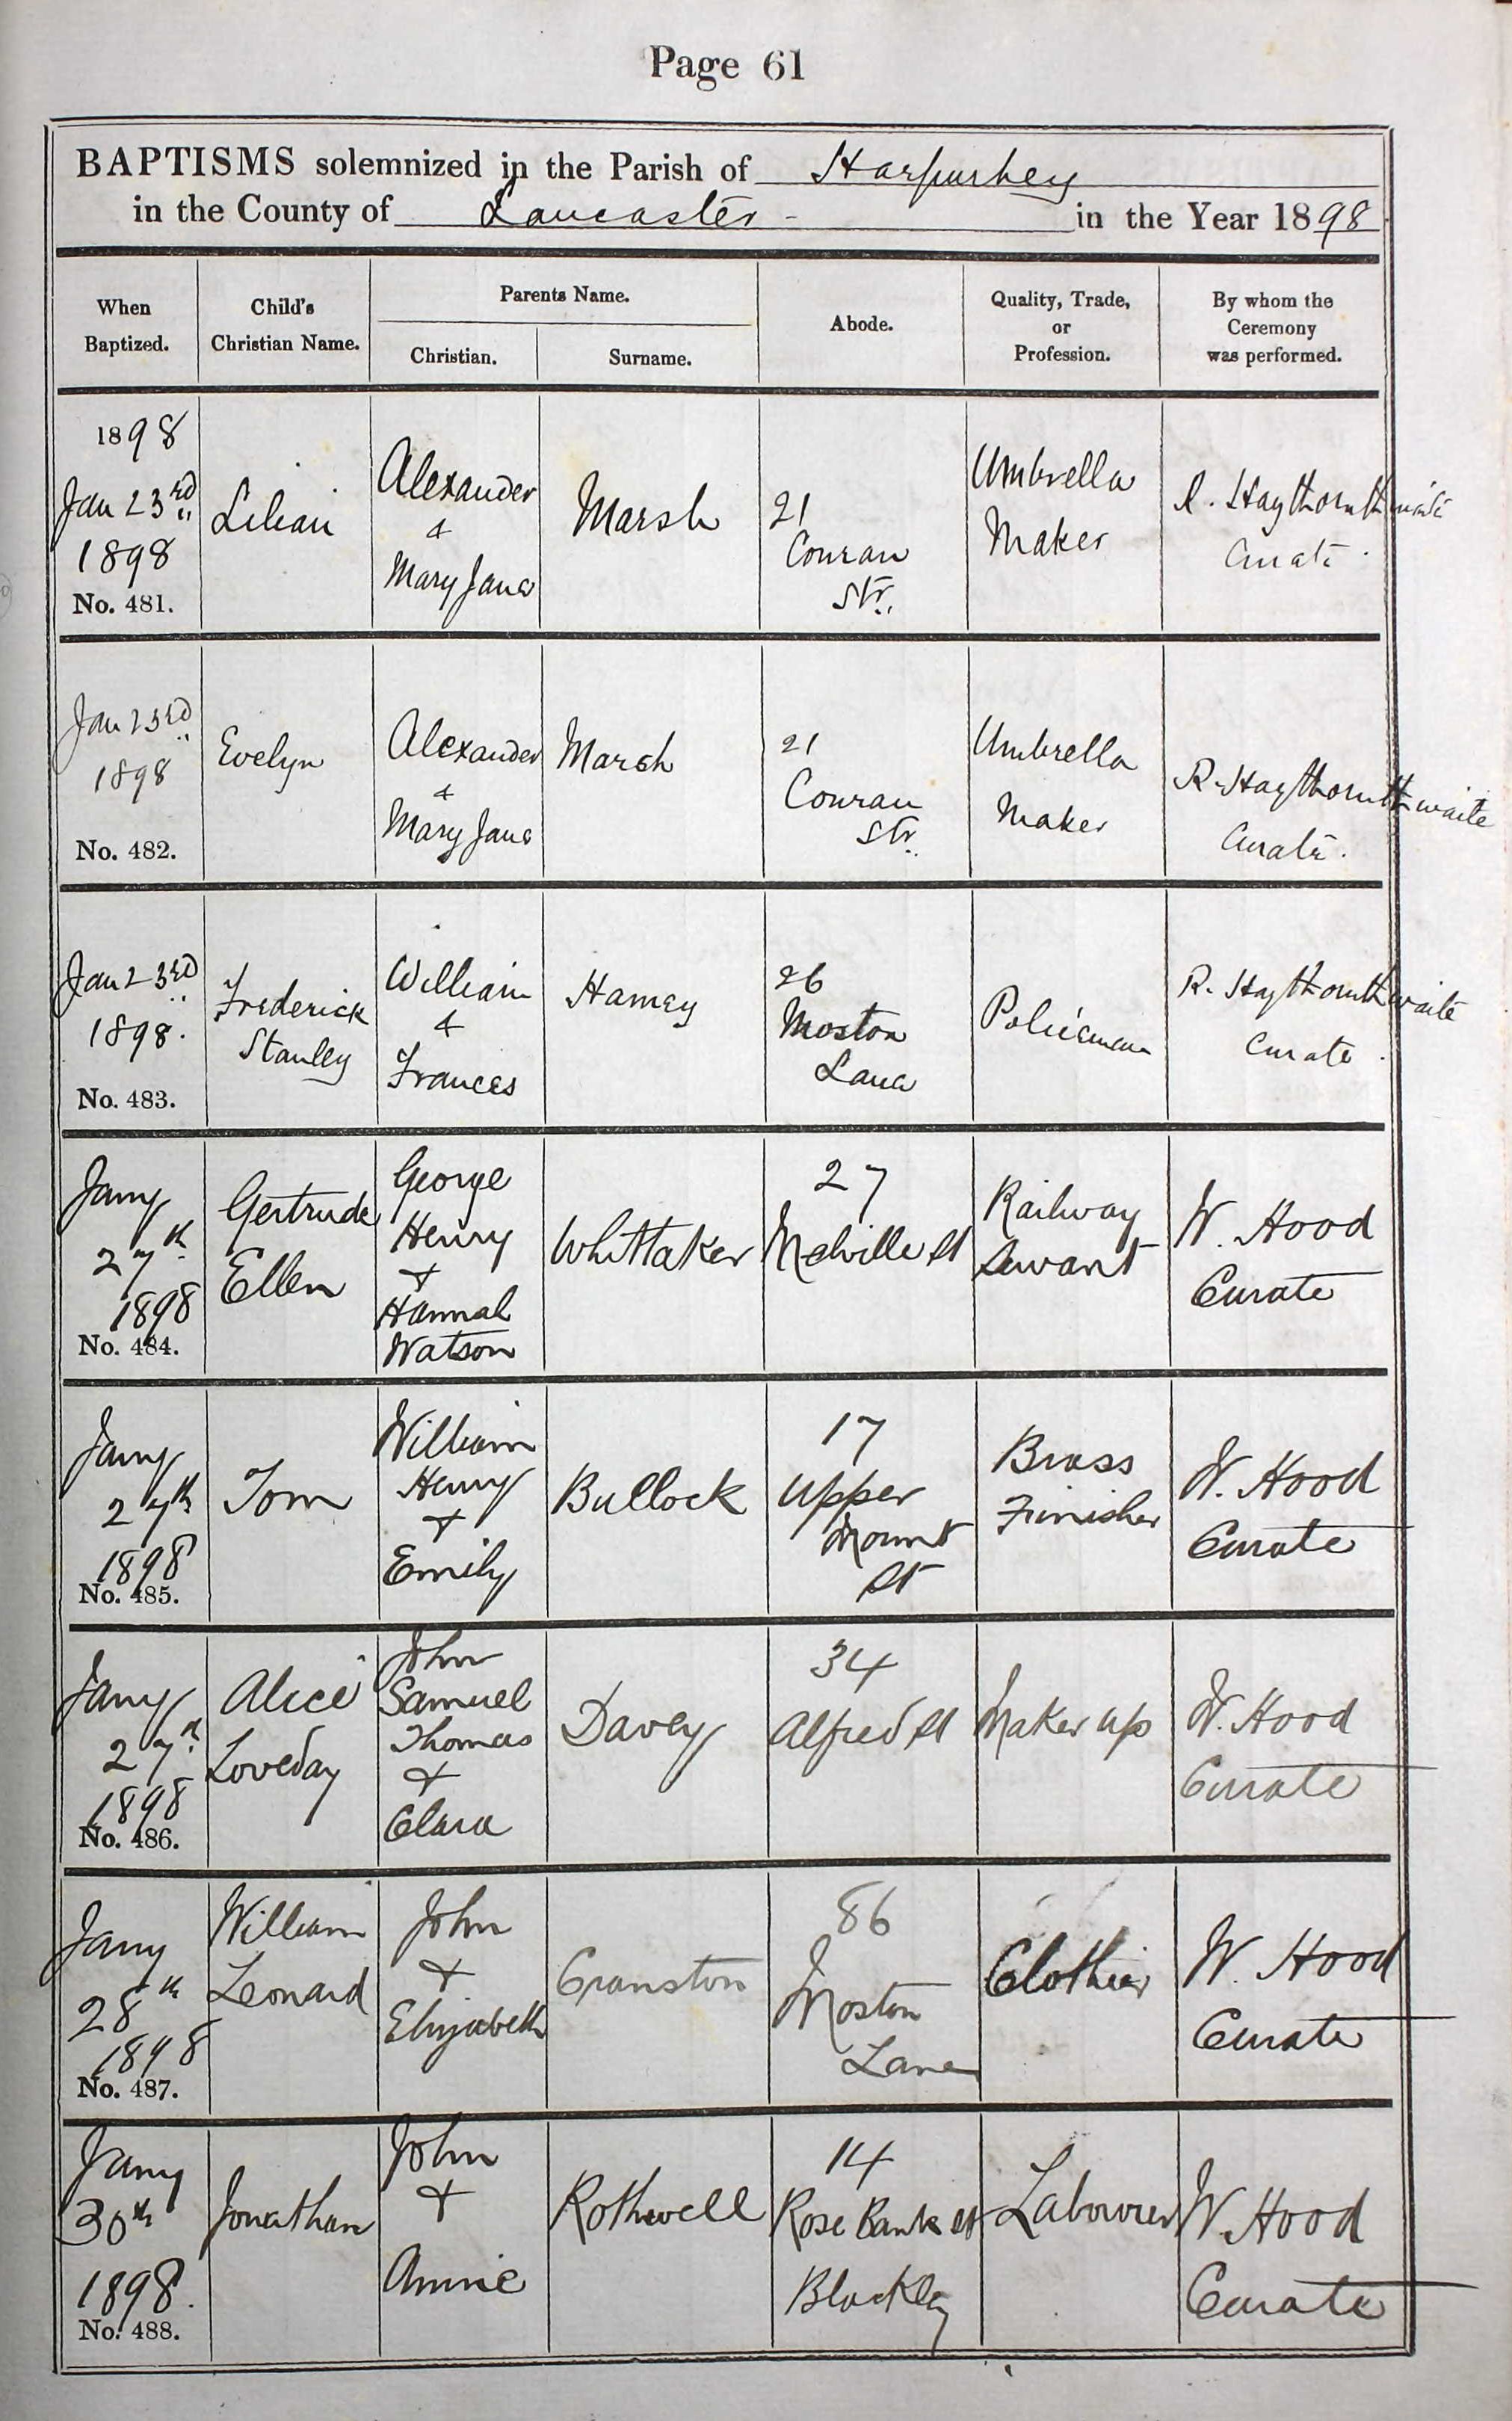 Page 61
BAPTISMS solemnized in the Parish of Harpurhey
in the County of Lancaster - in the Year 1898
When Baptized.
Child's Christian Name.
Parents Name.
Christian.
Surname.
Abode.
Quality, Trade, or Profession.
By whom the Ceremony was performed.
1898
Jan 23rd
1898
No. 481.
Lilian
Alexander
&
Mary Jane
Marsh
21
Conran
Str.
Umbrella
Maker
R. Haythornthwaite
Curate.
Jan 23rd
1898
No. 482.
Evelyn
Alexander
&
Mary Jane
Marsh
21
Conran
Str.
Umbrella
Maker
R. Haythornthwaite
Curate.
Jan 23rd
1898.
No. 483.
Frederick
Stanley
William
&
Frances
Hamey
26
Moston
Lane
Policeman
R. Haythornthwaite
Curate.
Jany
27th
1898
No. 484.
Gertrude
Ellen
George
Henry
+
Hannah
Watson
Whittaker
27
Melville St
Railway
Servant
W. Hood
Curate
Jany
27th
1898
No. 485.
Tom
William
Henry
+
Emily
Bullock
17
Upper
Mount
St
Brass
Finisher
W. Hood
Curate
Jany
27th
1898
No. 486.
Alice
Loveday
John
Samuel
Thomas
+
Clara
Davey
34
Alfred St
Maker up
W. Hood
Curate
Jany
28th
1898
No. 487.
William
Leonard
John
+
Elizabeth
Cranston
86
Moston
Lane
Clothier
W. Hood
Curate
Jany
30th
1898.
No. 488.
Jonathan
John
+
Annie
Rothwell
14
Rose Bank St
Blackley
Labourer
W. Hood
Curate